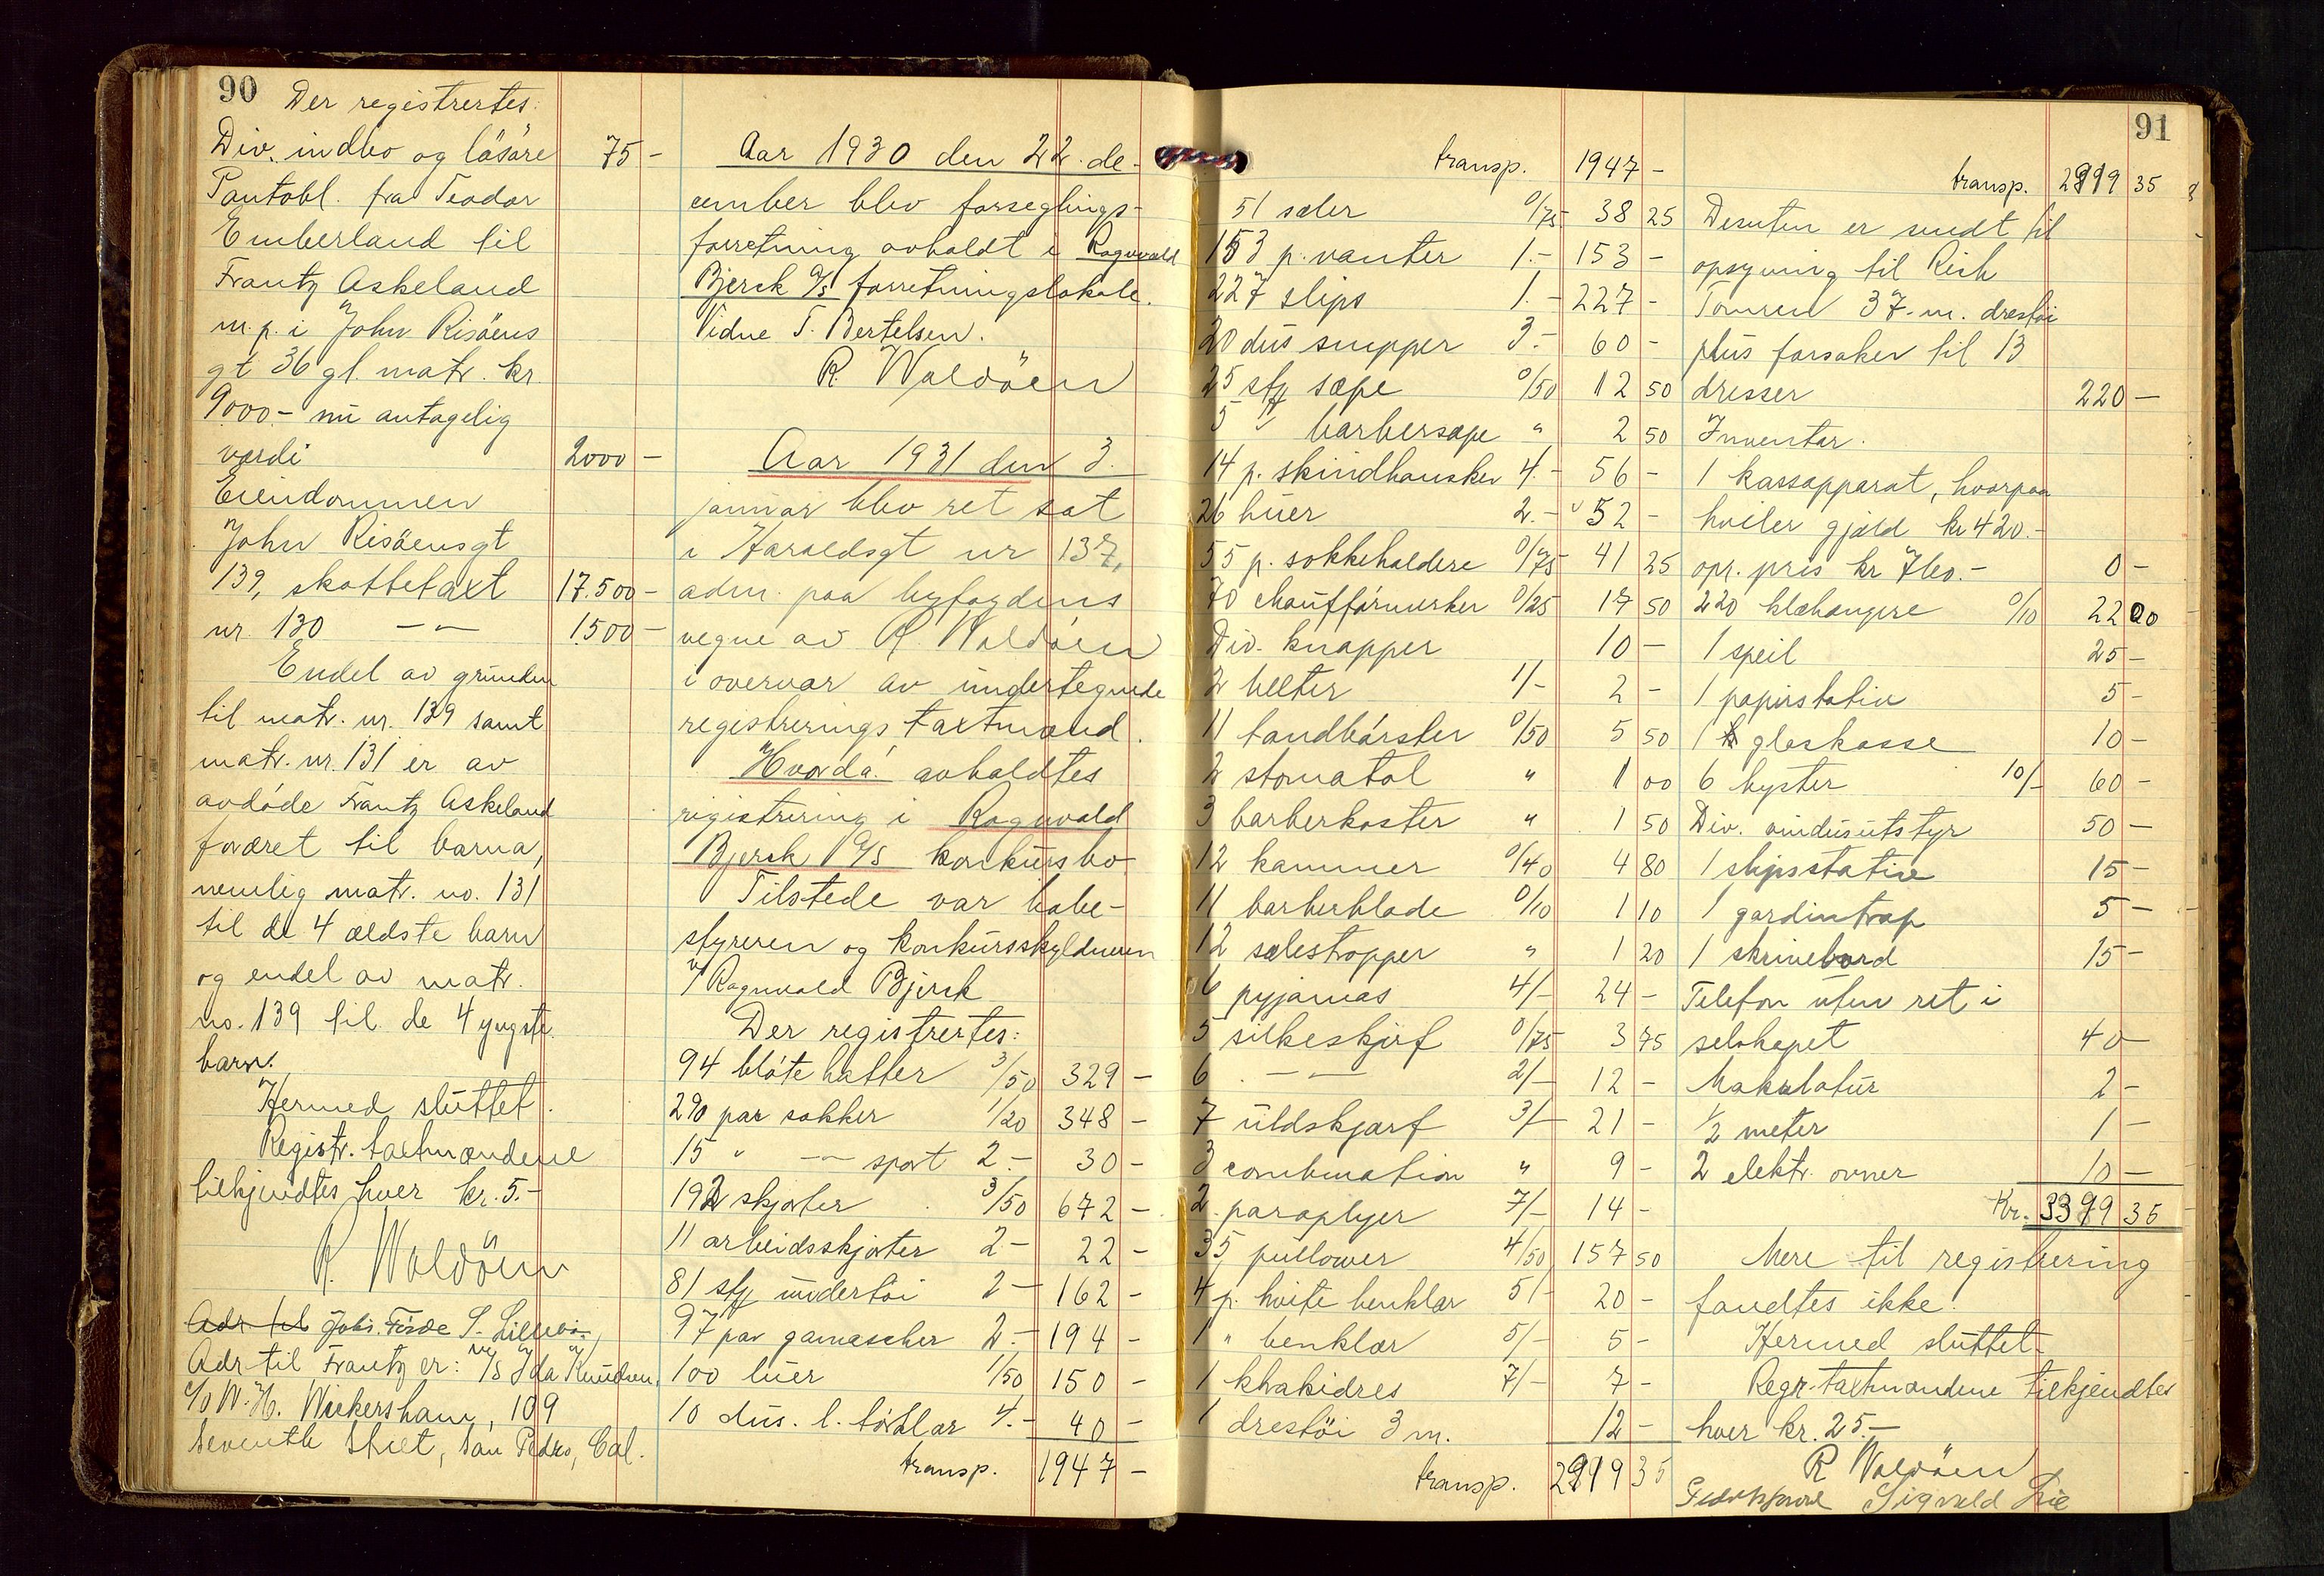 90
Der registrertes:
Div. indbo og lösöre 75 -
Pantobl. fra Teodor
Emberland til
Frantz Askeland
m. p. i John Risöens
gt 36 gl. matr. kr.
9000.- nu antagelig
værdi 2000 -
Eiendommen
John Risöensgt
139, skattetaxt 17.500 -
nr. 130 — " — 1500 -
Endel av grunden
til matr. nr. 139 samt
matr. nr. 131 er av
avdöde Frantz Askeland
foræret til barna,
nemlig matr. no. 131
til de 4 ældste barn
og endel av matr.
no. 139 til de 4 yngste
barn.
Hermed sluttet.
Registr. taxtmændene
tilkjendtes hver kr. 5.-
R. Waldöen
Adr til Johs. Förde S.
Adr til Frantz er: M/S Ida Knudsen,
c/o W. H. Wickersham, 109
Seventh Street, San Pedro, Cal.
Aar 1930 den 22. de-
cember blev forseglings-
forretning avholdt i Ragnvald
Bjerck A/S forretningslokale.
Vidne T. Bertelsen.
R. Waldöen
Aar 1931 den 3.
januar blev ret sat
i Haraldsgt nr 137,
adm. paa byfogdens
vegne av R. Waldöen
i overvær av undertegnede
registrerings taxtmænd.
Hvorda! avholdtes
registrering i Ragnvald
Bjerck A/S konkursbo
Tilstede var bobe-
styreren og konkursskyldneren
v/ Ragnvald Bjerck
Der registrertes:
94 blöte hatter 3/50 329 -
290 par sokker 1/20 348 -
15 " — " — sport 2.- 30 -
192 skjorter 3/50 672 -
11 arbeidsskjorter 2.- 22 -
81 stk undertöi 2 - 162 -
97 par gamascher 2.- 194 -
100 luer 1/50 150 -
10 dus. l. törklær 4.- 40 -
transp. 1947 -
91
transp. 1947 -
51 sæler 0/75 38 25
153 p. vanter 1.- 153 -
227 slips 1.- 227 -
20 dus snipper 3.- 60 -
25 stk sæpe 0/50 12 50
5 " barbersæpe " 2 50
14 p. skindhansker 4.- 56 -
26 huer 2.- 52 -
55 p. sokkeholdere 0/75 41 25
70 chaufförmerker 0/25 17 50
Div. knapper 10 -
2 belter 1/- 2 -
11 tandbörster 0/50 5 50
2 stomatol " 1 00
3 barberkoster " 1 50
12 kammer 0/40 4 80
11 barberblade 0/10 1 10
12 sælestropper " 1 20
6 pyjamas 4/- 24 -
5 silkeskjerf 0/75 3 75
6 — " — 2/- 12 -
7 uldskjærf 3/- 21 -
3 combination " 9 -
2 paraplyer 7/- 14 -
35 pullower 4/50 157 50
4 p. hvite benklær 5/- 20 -
1 " benklær 5/- 5 -
1 khakidres 7/- 7 -
1 drestöi 3 m. 12 -
transp. 2919 35
transp. 2919 35
Desuten er sendt til
opsyning til Rich
Tomren 37 m. drestöi
plus forsaker til 13
dresser 220 -
Inventar.
1 kassapparat, hvorpaa
hviler gjæld kr 420.-
opr. pris kr 760.- 0 -
220 klæhængere 0/10 22 00
1 speil 25 -
1 papirstativ 5 -
1 glaskasse 10 -
6 byster 10/- 60 -
Div. vindusutstyr 50 -
1 slipsstativ 15 -
1 gardintrap 5 -
1 skrivebord 15 -
Telefon uten ret i
selskapet 40 -
Makulatur 2 -
1/2 meter 1 -
2 elektr. ovner 10 -
Kr. 3399 35
Mere til registrering
fandtes ikke.
Hermed sluttet.
Regr. taxtmændene tilkjendtes
hver kr. 25.-
R Waldöen
Sigvald Lie